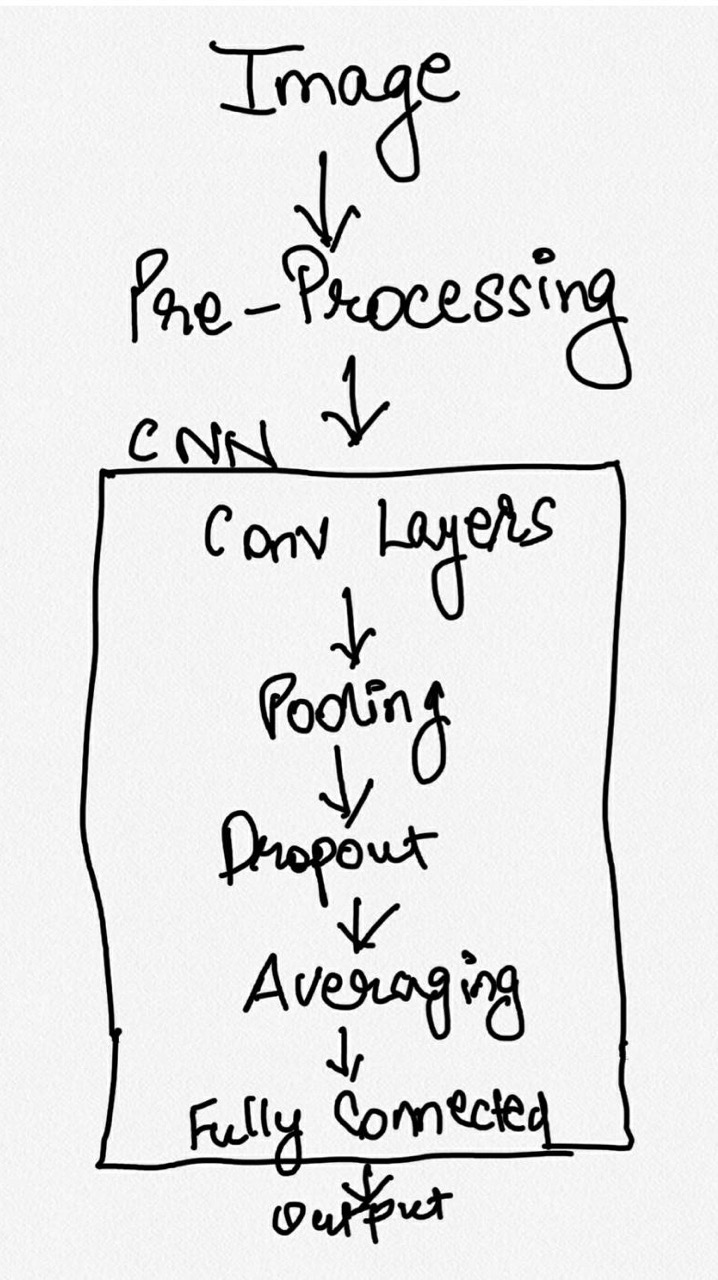 Image
Pre-Processing
CNN
Conv Layers
Pooling
Dropout
Averaging
Fully Connected
Output